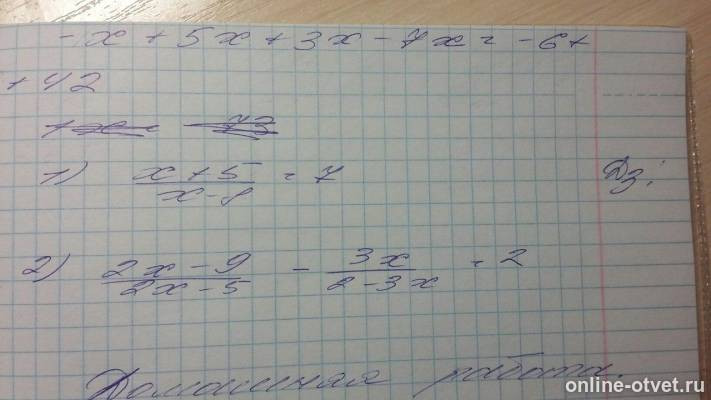 -x + 5x + 3x - 7x = -6 +
+ 42
1) (x + 5)/(x - 8) = 7
Дз:
2) (2x - 9)/(2x - 5) - 3x/(2 - 3x) = 2
Домашная работа.
online-otvet.ru